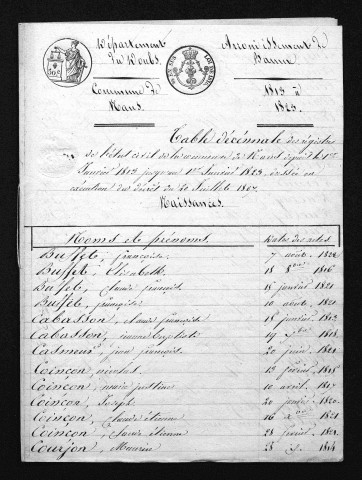 Département
du Doubs
Arrondissement de
Baume
Commune de
Nans
1813 à
1823
Table décennale des registres
de l'état civil de la commune de Nans depuis le 1er
Janvier 1813 jusqu'au 1er Janvier 1823, dressée en
exécution du décret du 20 Juillet 1807.
Naissances.
Noms et prénoms. Dates des actes
Buffet, françoise 7 août 1822
Buffet, Elisabeth 18 1816
Buffet, Claude françois 15 janvier 1821
Buffet, françoise 10 août 1821
Cabasson, claude françois 15 février 1813
Cabasson, jeanne baptiste 19 1818
Casmeur, jean françois 20 juin 1821
Coinçon, nicolas 13 février 1815
Coinçon, marie justine 10 avril 1817
Coinçon, Joseph 20 janvier 1820
Coinçon, claude étienne 16 1821
Coinçon, claude étienne 28 février 1821
Courjon, 28 1814